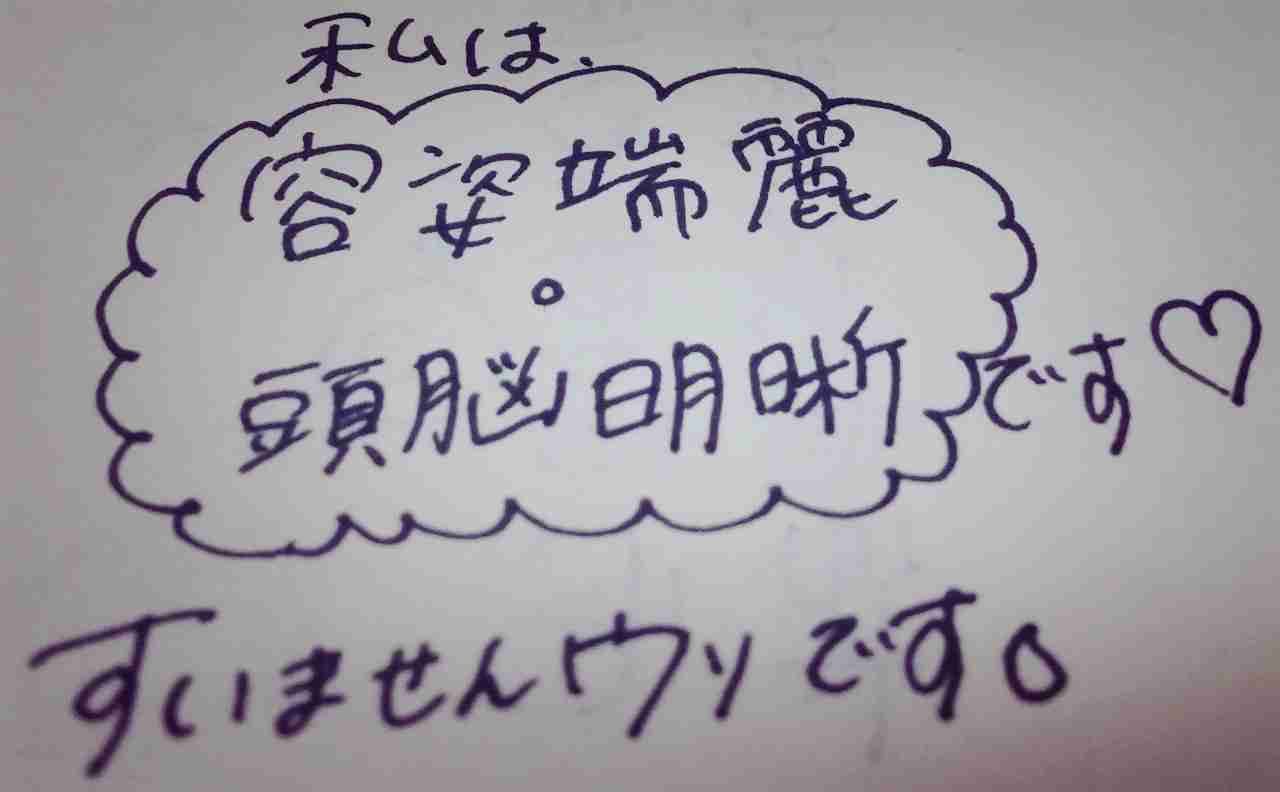 私は、
容姿端麗
・
頭脳明晰です♡
すいませんウソです。